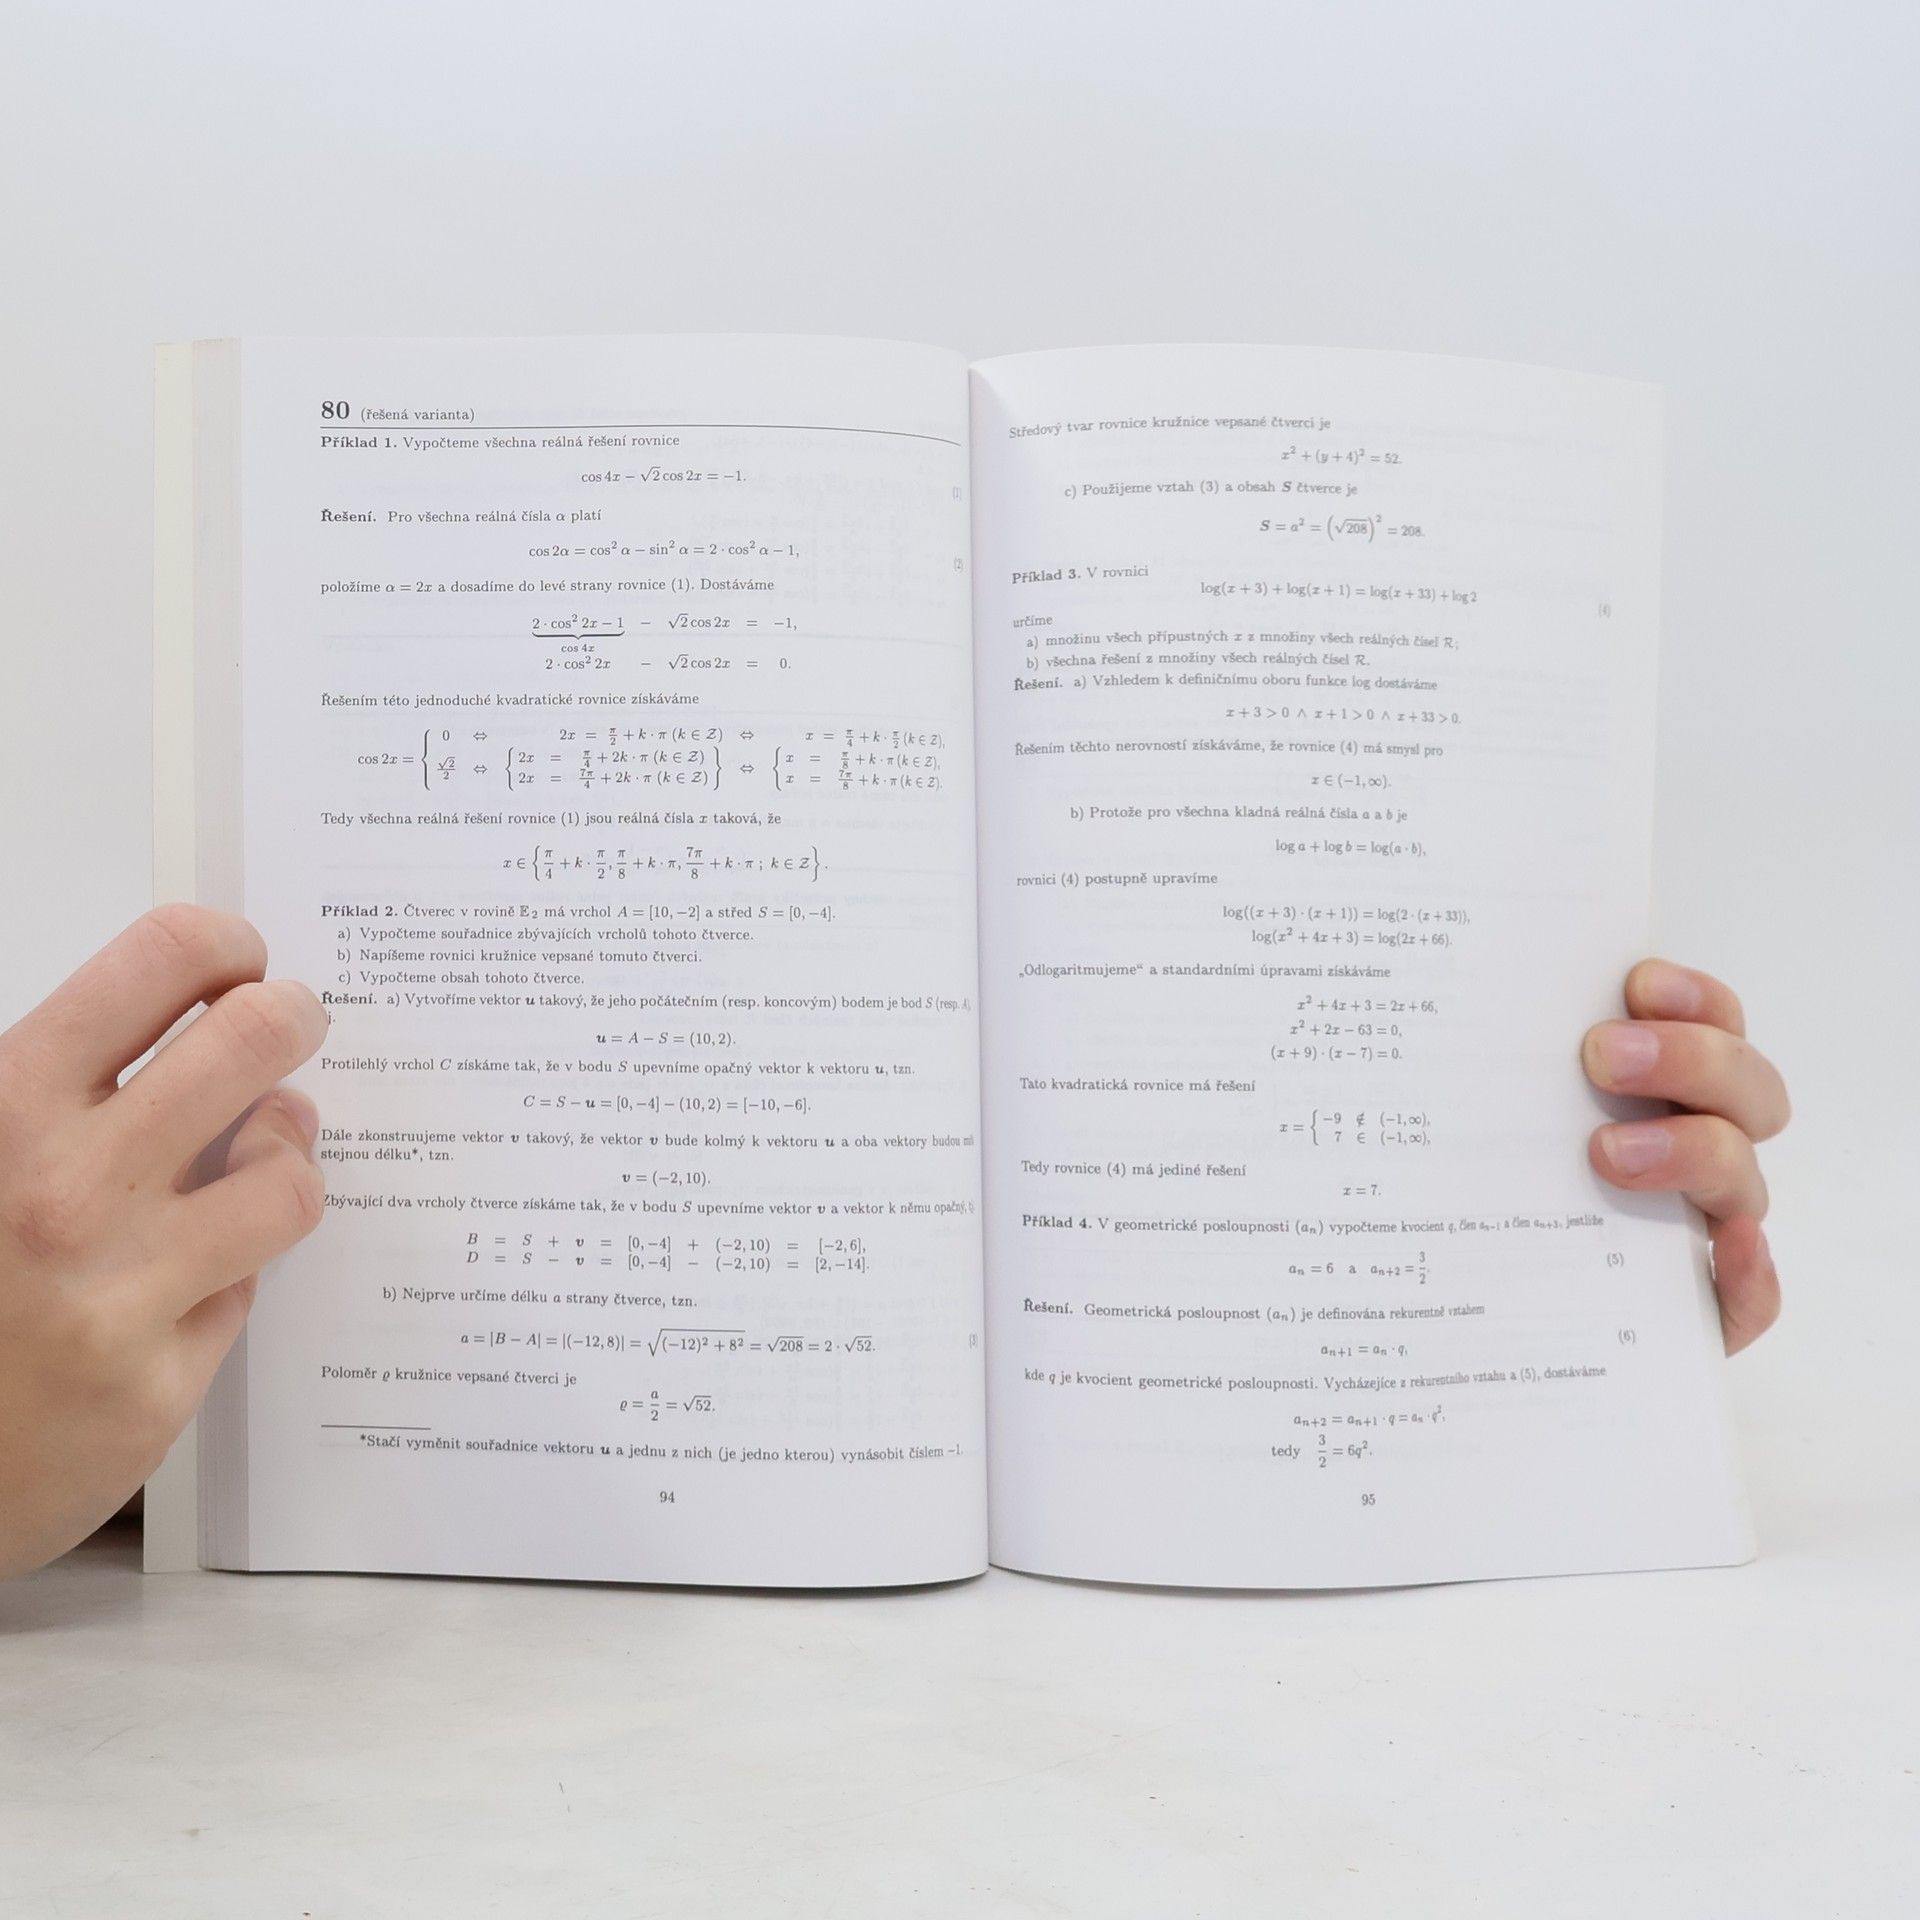 80 (řešená varianta)
Příklad 1. Vypočteme všechna reálná řešení rovnice
cos 4x − √2 cos 2x = −1. (1)
Řešení. Pro všechna reálná čísla α platí
cos 2α = cos² α − sin² α = 2 · cos² α − 1, (2)
položíme α = 2x a dosadíme do levé strany rovnice (1). Dostáváme
2 · cos² 2x − 1 − √2 cos 2x = −1,
cos 4x
2 · cos² 2x − √2 cos 2x = 0.
Řešením této jednoduché kvadratické rovnice získáváme
cos 2x = { 0 ⇔ 2x = π/2 + k · π (k ∈ Z) ⇔ x = π/4 + k · π/2 (k ∈ Z),
√2/2 ⇔ { 2x = π/4 + 2k · π (k ∈ Z) } ⇔ { x = π/8 + k · π (k ∈ Z),
2x = 7π/4 + 2k · π (k ∈ Z) x = 7π/8 + k · π (k ∈ Z).
Tedy všechna reálná řešení rovnice (1) jsou reálná čísla x taková, že
x ∈ {π/4 + k · π/2, π/8 + k · π, 7π/8 + k · π ; k ∈ Z}.
Příklad 2. Čtverec v rovině 𝔼₂ má vrchol A = [10, −2] a střed S = [0, −4].
a) Vypočteme souřadnice zbývajících vrcholů tohoto čtverce.
b) Napíšeme rovnici kružnice vepsané tomuto čtverci.
c) Vypočteme obsah tohoto čtverce.
Řešení. a) Vytvoříme vektor u takový, že jeho počátečním (resp. koncovým) bodem je bod S (resp. A),
j.
u = A − S = (10, 2).
Protilehlý vrchol C získáme tak, že v bodu S upevníme opačný vektor k vektoru u, tzn.
C = S − u = [0, −4] − (10, 2) = [−10, −6].
Dále zkonstruujeme vektor v takový, že vektor v bude kolmý k vektoru u a oba vektory budou mít
stejnou délku*, tzn.
v = (−2, 10).
Zbývající dva vrcholy čtverce získáme tak, že v bodu S upevníme vektor v a vektor k němu opačný,
B = S + v = [0, −4] + (−2, 10) = [−2, 6],
D = S − v = [0, −4] − (−2, 10) = [2, −14].
b) Nejprve určíme délku a strany čtverce, tzn.
a = |B − A| = |(−12, 8)| = √((−12)² + 8²) = √208 = 2 · √52. (3)
Poloměr ϱ kružnice vepsané čtverci je
ϱ = a/2 = √52.
*Stačí vyměnit souřadnice vektoru u a jednu z nich (je jedno kterou) vynásobit číslem −1.
94
Středový tvar rovnice kružnice vepsané čtverci je
x² + (y + 4)² = 52.
c) Použijeme vztah (3) a obsah S čtverce je
S = a² = (√208)² = 208.
Příklad 3. V rovnici
log(x + 3) + log(x + 1) = log(x + 33) + log 2 (4)
určíme
a) množinu všech přípustných x z množiny všech reálných čísel R;
b) všechna řešení z množiny všech reálných čísel R.
Řešení. a) Vzhledem k definičnímu oboru funkce log dostáváme
x + 3 > 0 ∧ x + 1 > 0 ∧ x + 33 > 0.
Řešením těchto nerovností získáváme, že rovnice (4) má smysl pro
x ∈ (−1, ∞).
b) Protože pro všechna kladná reálná čísla a a b je
log a + log b = log(a · b),
rovnici (4) postupně upravíme
log((x + 3) · (x + 1)) = log(2 · (x + 33)),
log(x² + 4x + 3) = log(2x + 66).
„Odlogaritmujeme“ a standardními úpravami získáváme
x² + 4x + 3 = 2x + 66,
x² + 2x − 63 = 0,
(x + 9) · (x − 7) = 0.
Tato kvadratická rovnice má řešení
x = { −9 ∉ (−1, ∞),
7 ∈ (−1, ∞),
Tedy rovnice (4) má jediné řešení
x = 7.
Příklad 4. V geometrické posloupnosti (aₙ) vypočteme kvocient q, člen aₙ₋₁ a člen aₙ₊₃, jestliže
aₙ = 6 a aₙ₊₂ = 3/2. (5)
Řešení. Geometrická posloupnost (aₙ) je definována rekurentně vztahem
aₙ₊₁ = aₙ · q, (6)
kde q je kvocient geometrické posloupnosti. Vycházejíce z rekurentního vztahu a (5), dostáváme
aₙ₊₂ = aₙ₊₁ · q = aₙ · q²,
tedy 3/2 = 6q².
95